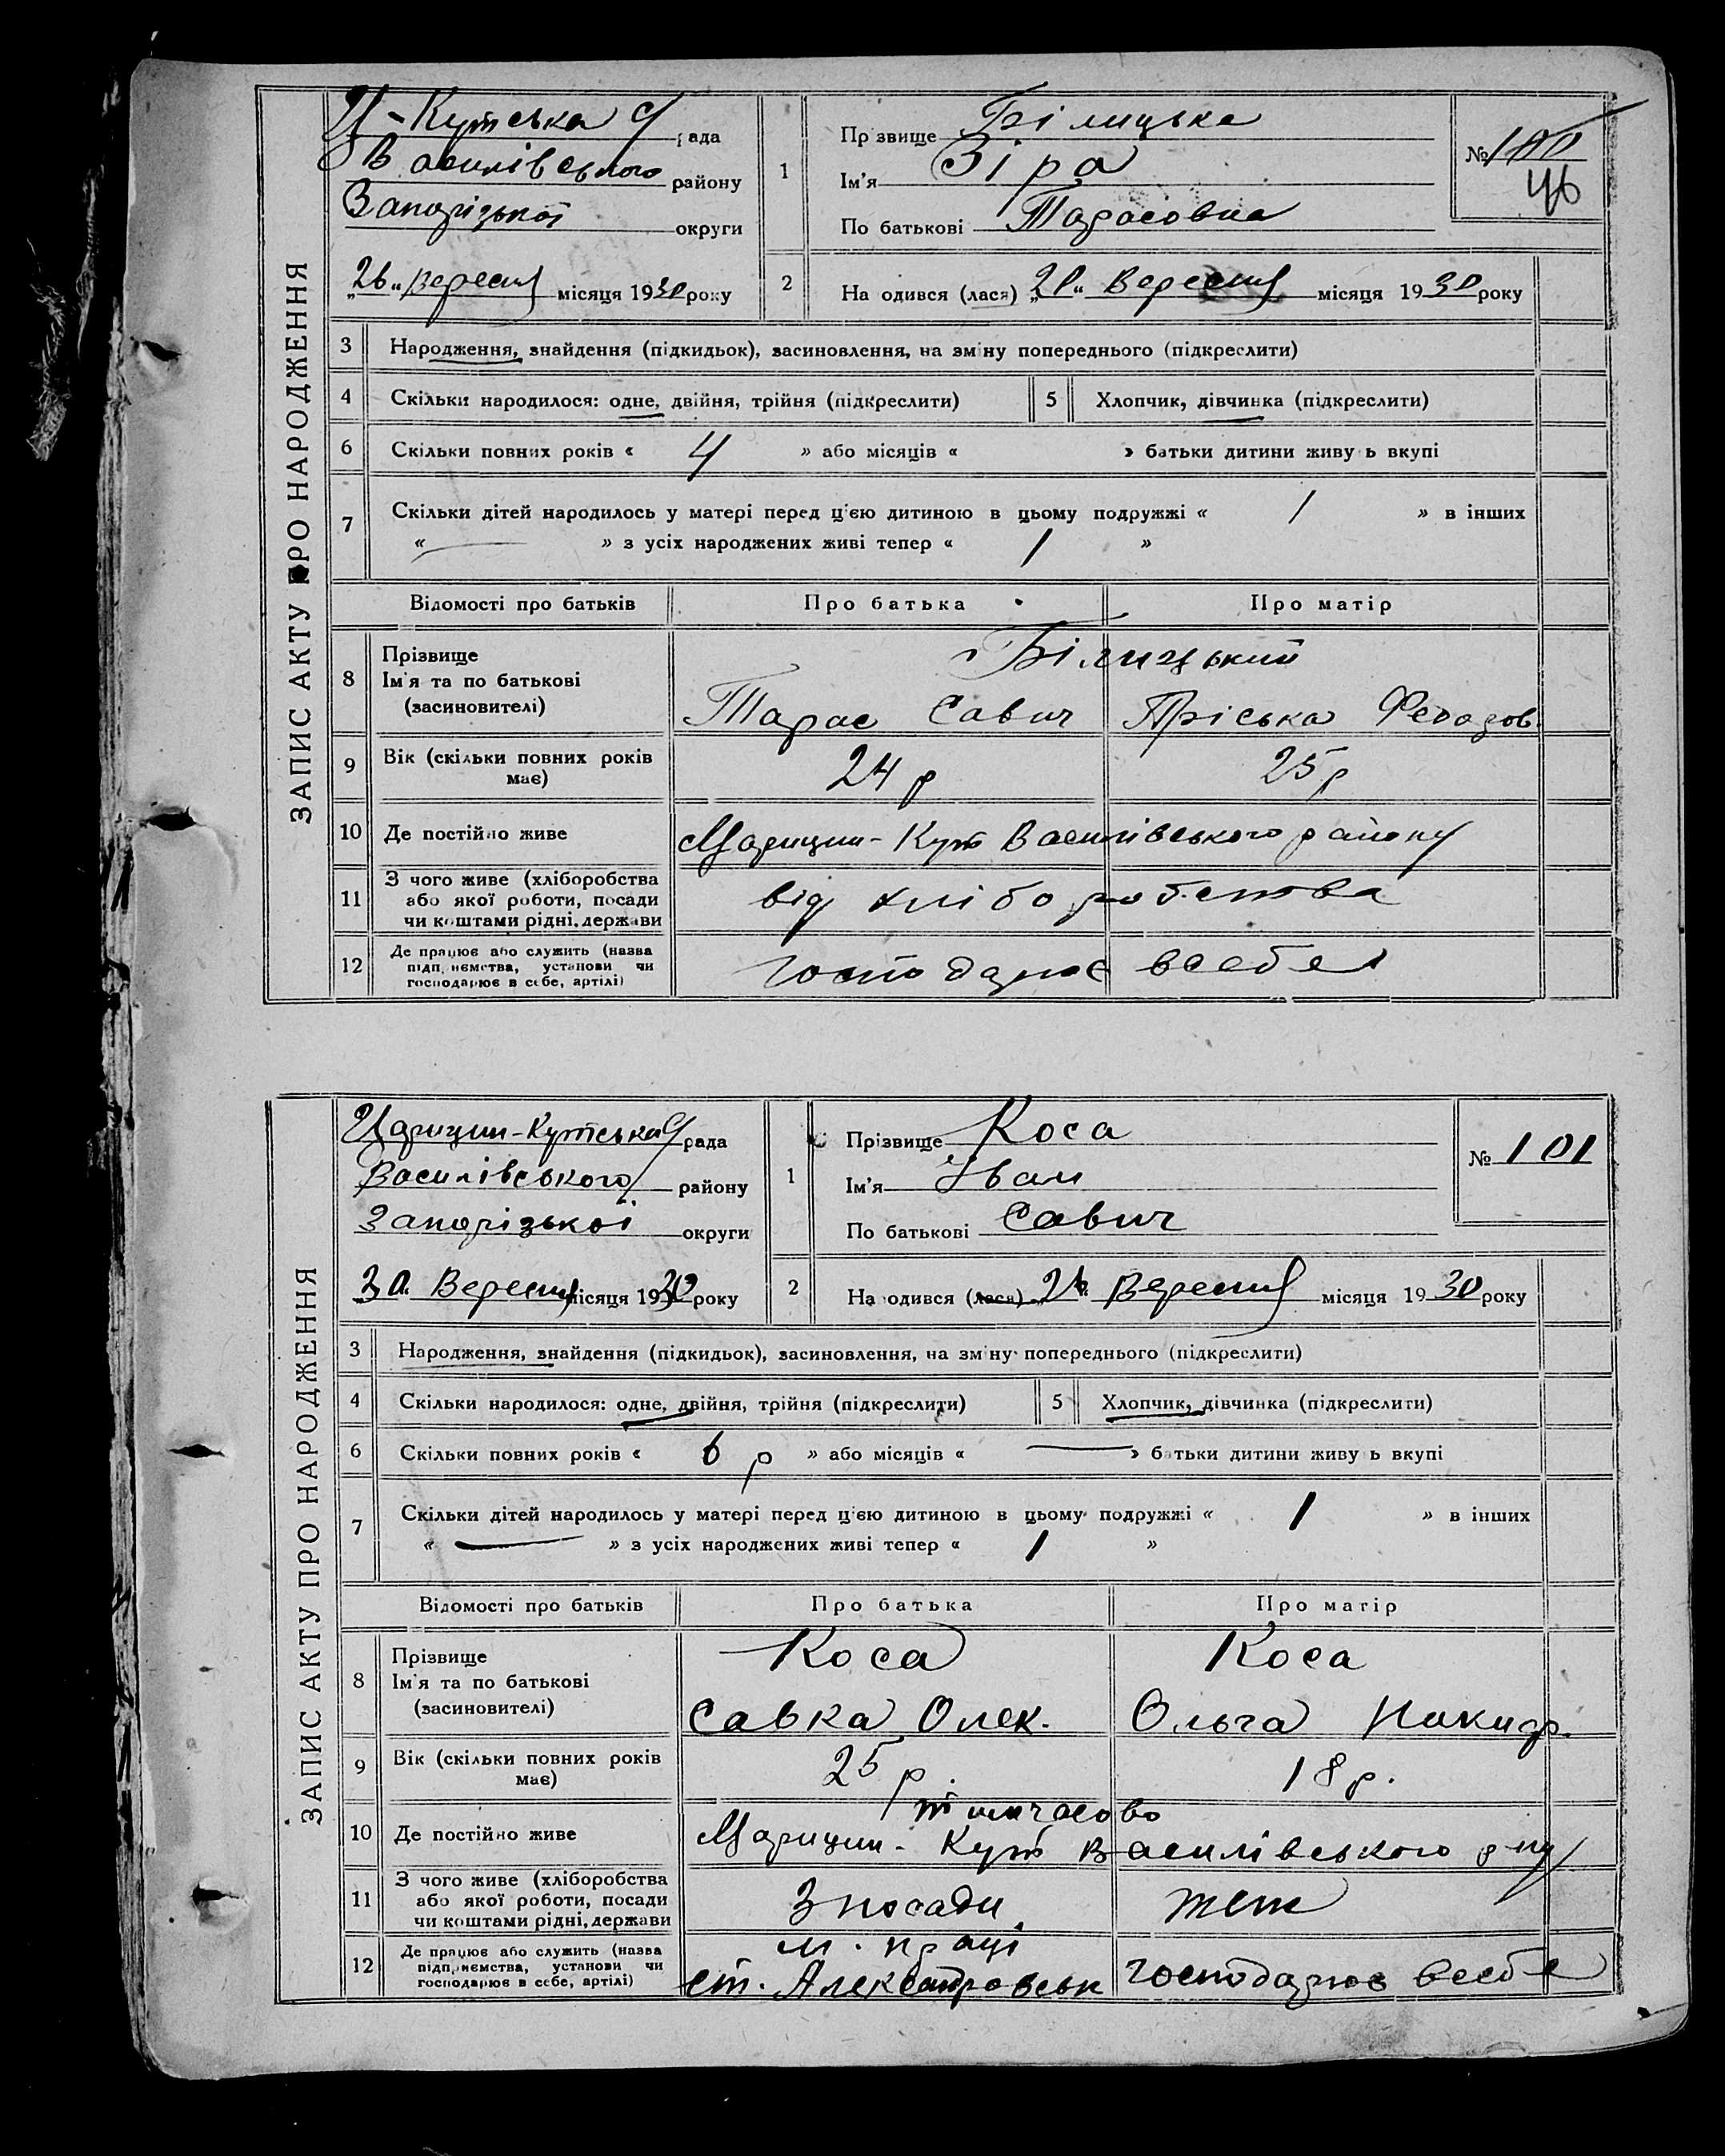 ЗАПИС АКТУ ПРО НАРОДЖЕННЯ
Ц-Кутська с/рада
Василівського району
Запорізької округи
„26„ Вересня місяця 1930 року
1
Прізвище Білицька
Ім'я Зіра
По батькові Тарасовна
№ 100
46
2
На одився (лася) „20„ Вересня місяця 1930 року
3 Народження, знайдення (підкидьок), засиновлення, на зміну попереднього (підкреслити)
4 Скільки народилося: одне, двійня, трійня (підкреслити) 5 Хлопчик, дівчинка (підкреслити)
6 Скільки повних років « 4 » або місяців « » батьки дитини живу ь вкупі
7 Скільки дітей народилось у матері перед ц'єю дитиною в цьому подружжі « 1 » в інших
« — » з усіх народжених живі тепер « 1 »
Відомості про батьків Про батька Про матір
8 Прізвище Білицький
Ім'я та по батькові
(засиновителі) Тарас Савич Пріська Феодоров.
9 Вік (скільки повних років має) 24 р 25 р
10 Де постійно живе Царицин-Кут Василівського району
11 З чого живе (хліборобства
або якої роботи, посади
чи коштами рідні, держави від хліборобства
12 Де працює або служить (назва
підприємства, установи чи
господарює в себе, артілі) господарює всебе
ЗАПИС АКТУ ПРО НАРОДЖЕННЯ
Царицин-Кутська с/рада
Василівського району
Запорізької округи
30. Вересня місяця 1930 року
1
Прізвище Коса
Ім'я Іван
По батькові Савич
№ 101
2
На одився (лася) „26„ Вересня місяця 1930 року
3 Народження, знайдення (підкидьок), засиновлення, на зміну попереднього (підкреслити)
4 Скільки народилося: одне, двійня, трійня (підкреслити) 5 Хлопчик, дівчинка (підкреслити)
6 Скільки повних років « 6 р » або місяців « — » батьки дитини живу ь вкупі
7 Скільки дітей народилось у матері перед ц'єю дитиною в цьому подружжі « 1 » в інших
« — » з усіх народжених живі тепер « 1 »
Відомості про батьків Про батька Про матір
8 Прізвище Коса Коса
Ім'я та по батькові
(засиновителі) Савка Олек. Ольга Никиф.
9 Вік (скільки повних років має) 25 р. 18 р.
тимчасово
10 Де постійно живе Царицин-Кут Василівського р-ну
11 З чого живе (хліборобства
або якої роботи, посади
чи коштами рідні, держави З посади теж
12 Де працює або служить (назва
підприємства, установи чи
господарює в себе, артілі) м. праці
ст. Александровськ господарює всебе